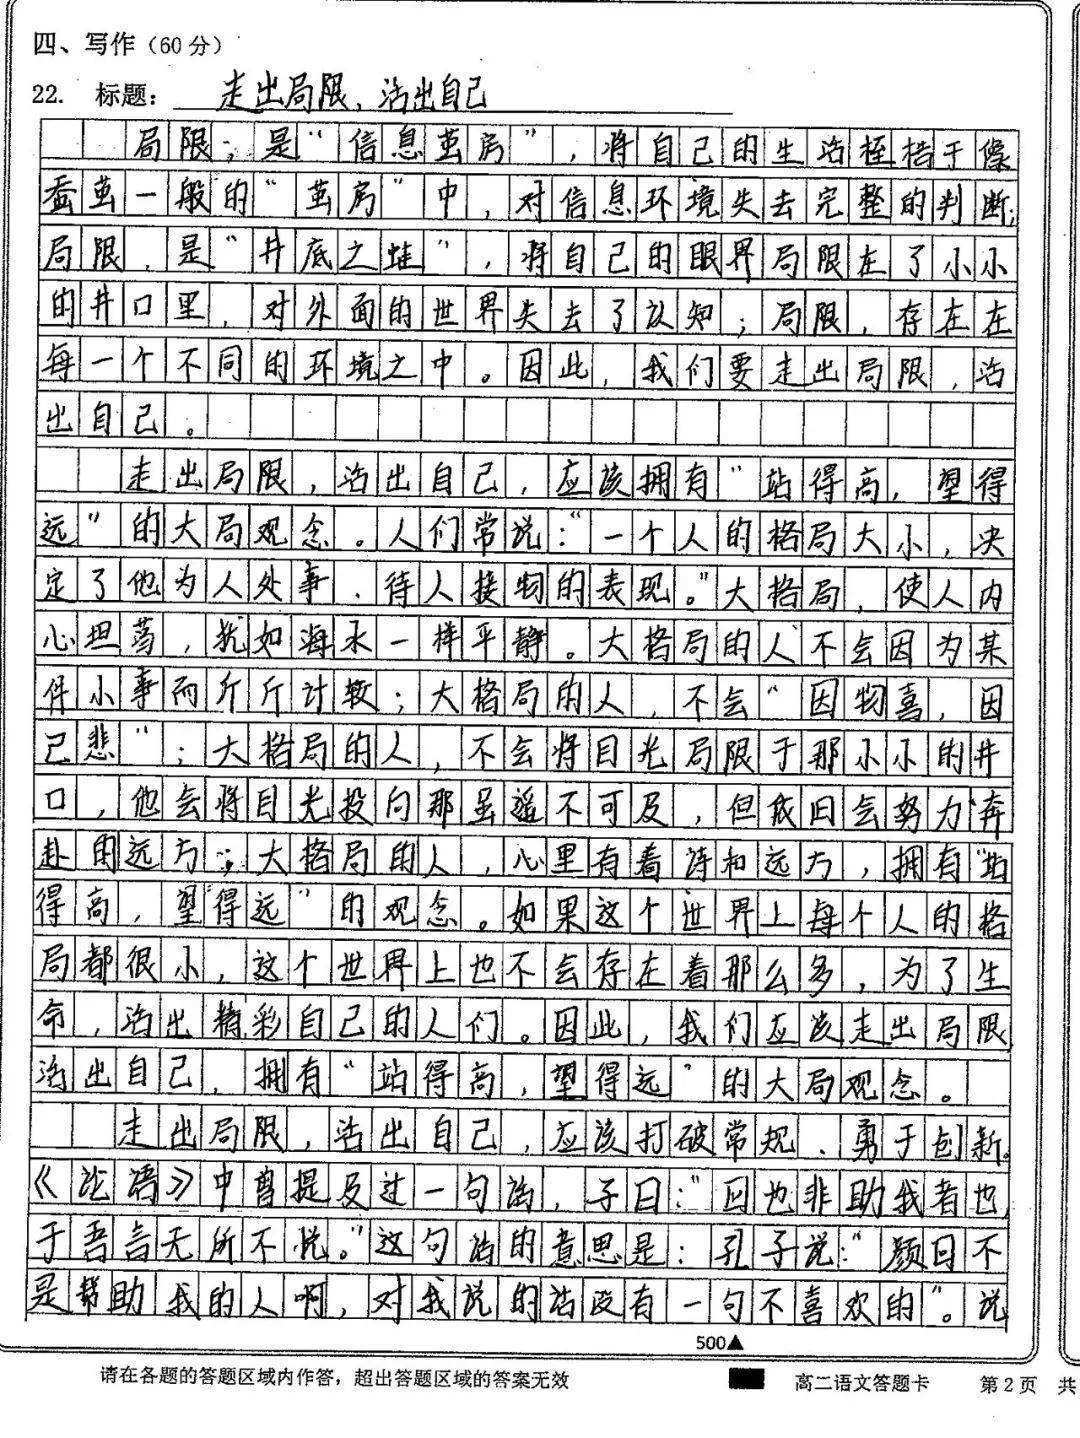 四、写作（60 分）
22. 标题：走出局限，活出自己
局限，是“信息茧房”，将自己的生活桎梏于像
蚕茧一般的“茧房”中，对信息环境失去完整的判断；
局限，是“井底之蛙”，将自己的眼界局限在了小小
的井口里，对外面的世界失去了认知；局限，存在在
每一个不同的环境之中。因此，我们要走出局限，活
出自己。
走出局限，活出自己，应该拥有“站得高，望得
远”的大局观念。人们常说：“一个人的格局大小，决
定了他为人处事、待人接物的表现。”大格局，使人内
心坦荡，犹如海水一样平静。大格局的人不会因为某
件小事而斤斤计较；大格局的人，不会“因物喜，因
己悲”；大格局的人，不会将目光局限于那小小的井
口，他会将目光投向那虽遥不可及，但依旧会努力奔
赴的远方；大格局的人，心里有着诗和远方，拥有“站
得高，望得远”的观念。如果这个世界上每个人的格
局都很小，这个世界上也不会存在着那么多，为了生
命，活出精彩自己的人们。因此，我们应该走出局限
活出自己，拥有“站得高，望得远”的大局观念。
走出局限，活出自己，应该打破常规、勇于创新。
《论语》中曾提及过一句话，子曰：“回也非助我者也，
于吾言无所不悦。”这句话的意思是：孔子说：“颜回不
是帮助我的人啊，对我说的话没有一句不喜欢的”。说
500▲
请在各题的答题区域内作答，超出答题区域的答案无效
高二语文答题卡 第 2 页 共